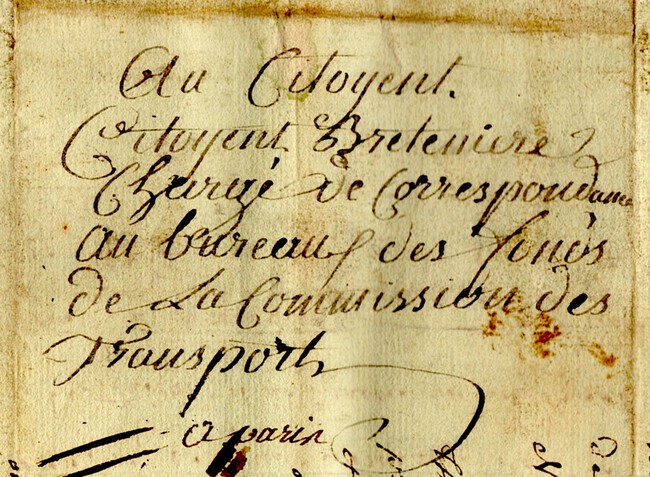 Au Citoyent.
Citoyent Breteniere
Chargé de Correspondance
au bureau des fonds
de La Commission des
Transports
a paris